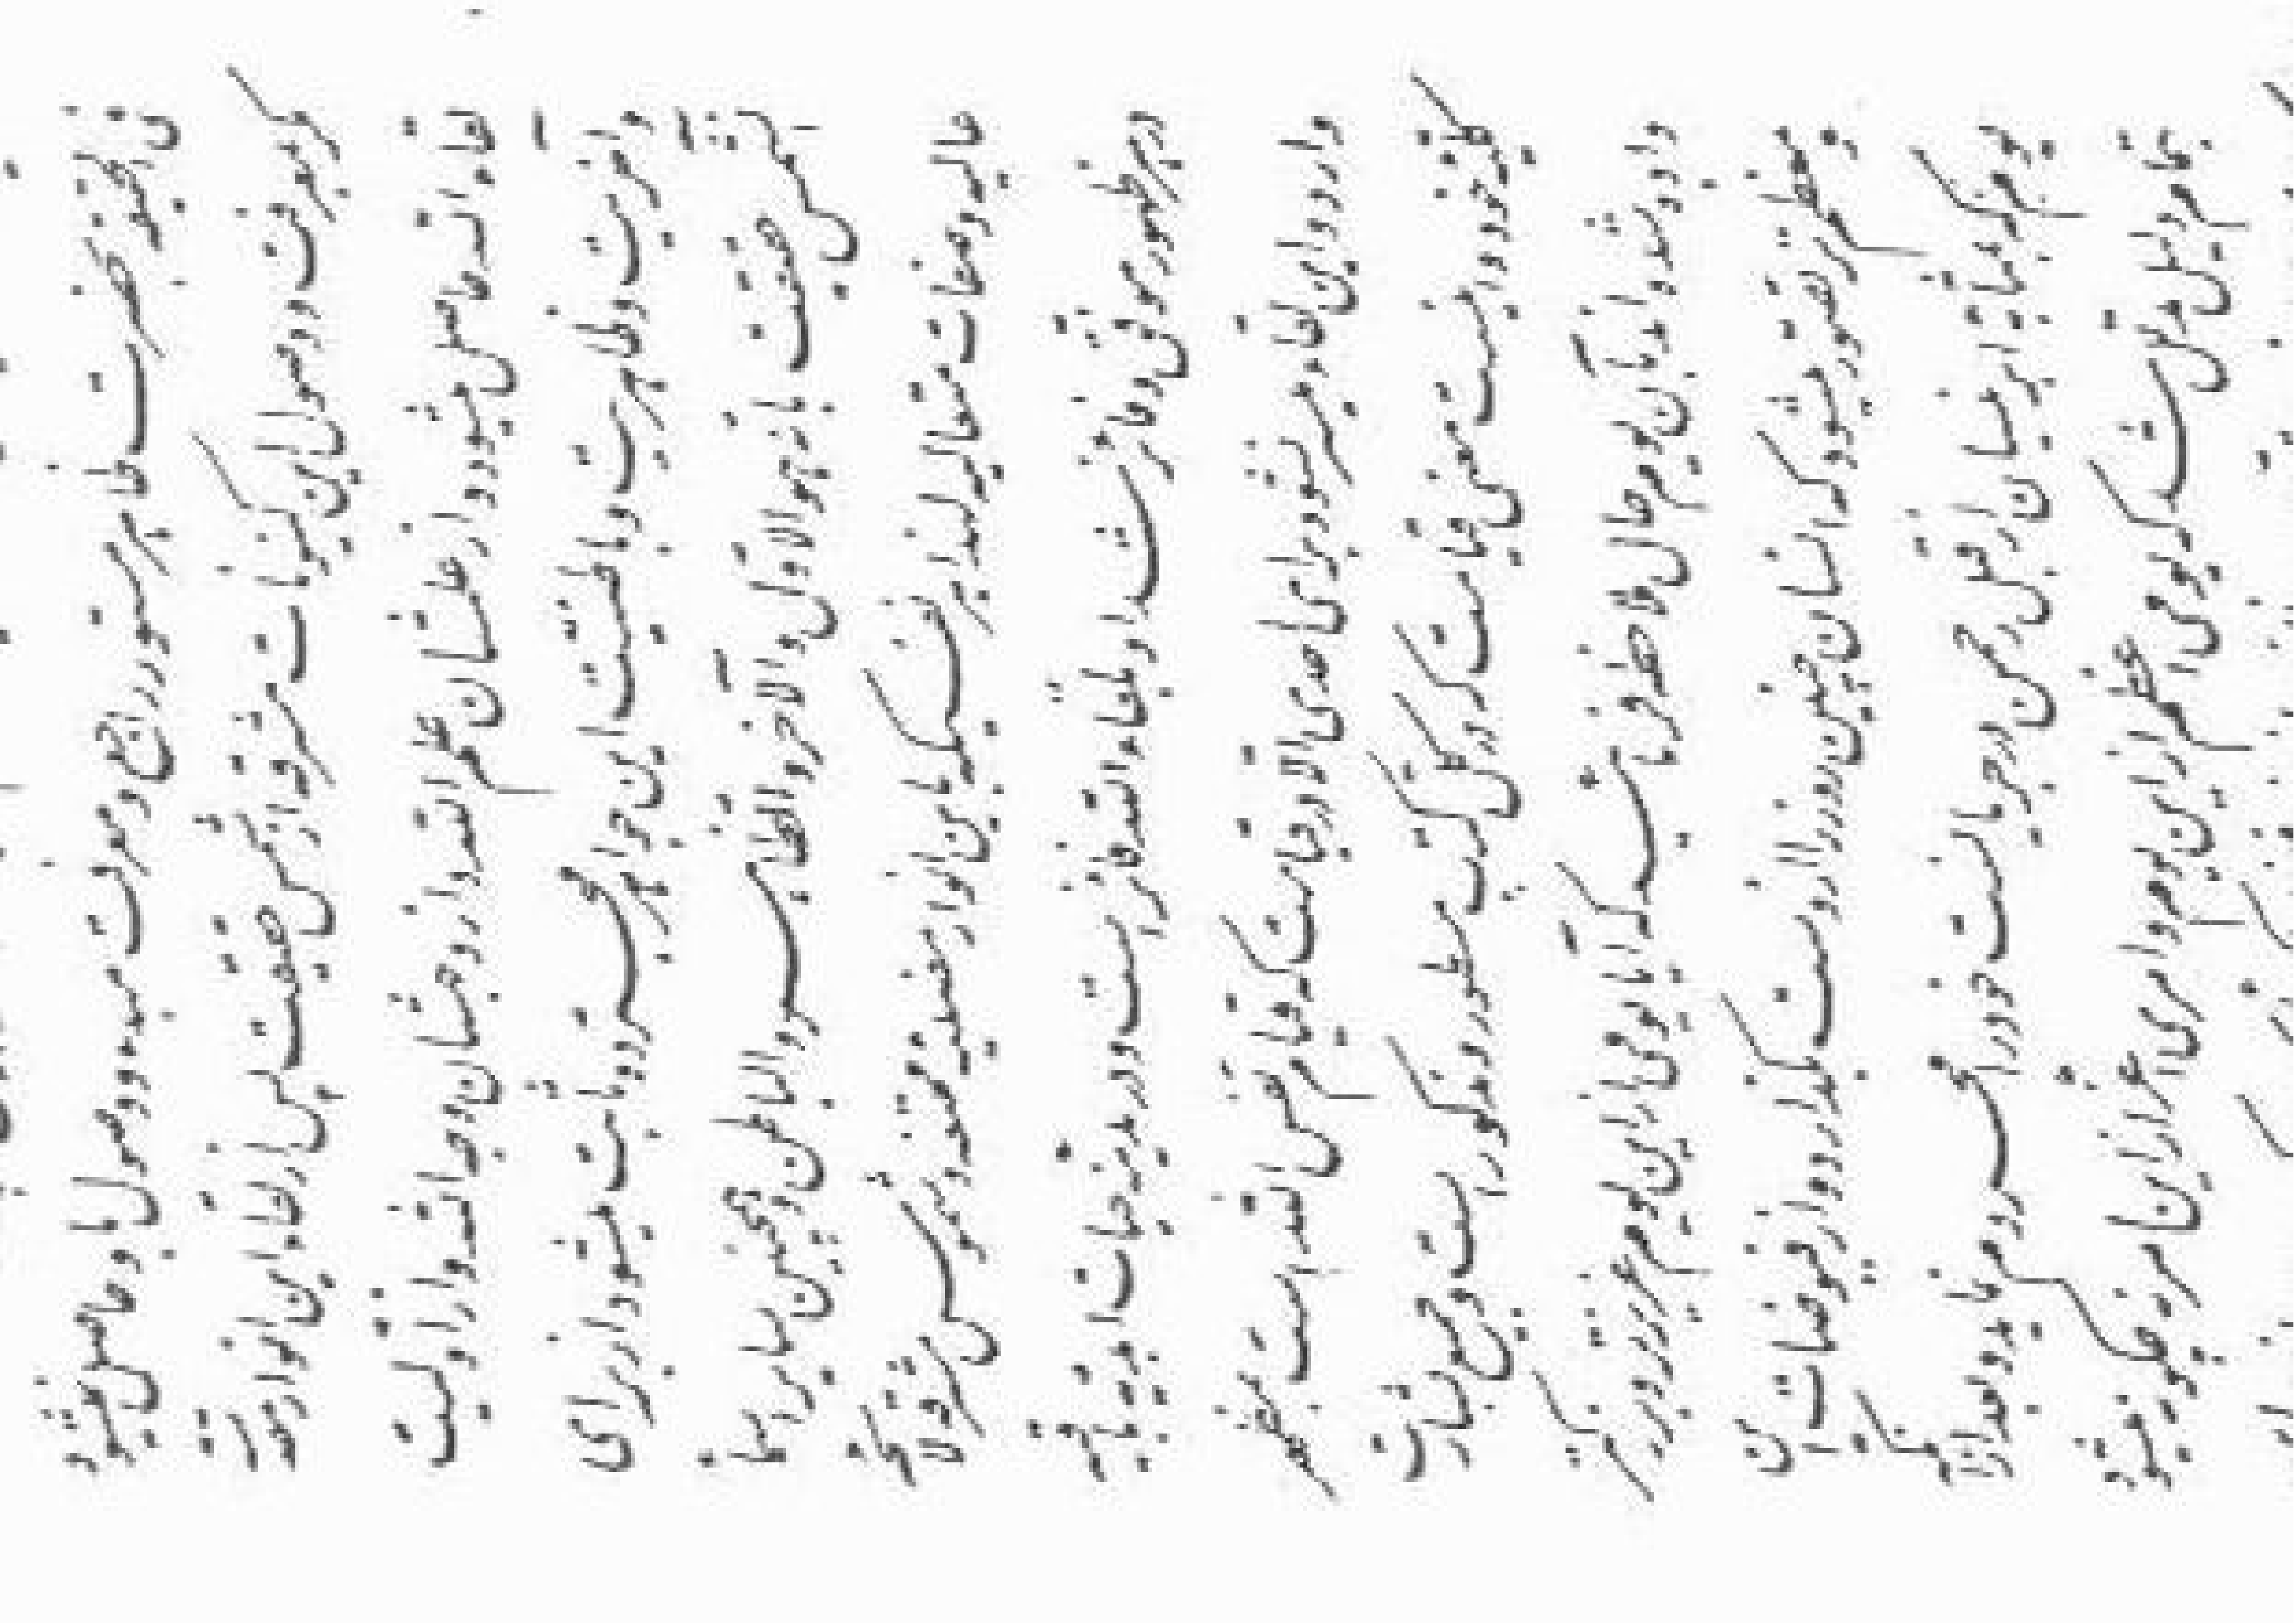 فی الحقیقه بحضرت ظاهر مستور راجع و معرفت مبدء و وصول باو حاصل نمیشود
مگر بمعرفت و وصول این کینونات مشرقه از شمس حقیقت پس از لقاء این انوار مقدّسه
لقاء الله حاصل میشود و از علمشان علم الله و از وجهشان وجه الله و از اولیت
و آخریت و ظاهریت و باطنیت این جواهر مجرده ثابت میشود از برای
آن شمس حقیقت بانه هو الاول و الآخر و الظاهر و الباطن و همچنین سایر اسماء
عالیه و صفات متعالیه لهذا هر نفسیکه باین انوار مضیئه ممتنعه و شموس مشرقه لائحه
در هر ظهور موفق و فائز شد او بلقاء الله فائز است و در مدینه حیات ابدیه باقیه
وارد و این لقاء میسر نشود برای احدی الا در قیامت که قیام نفس الله است بمظهر
کلیه خود و اینست معنی قیامت که در کل کتب مسطور و مذکور است و جمیع بشارت
داده شده‌اند بآن یوم حال ملاحظه فرمائید که آیا یومی از این یوم عزیزتر و بزرگتر
و معظم‌تر تصور میشود که انسان چنین روز را از دست بگذارد و از فیوضات این
یوم که بمثابه ابر نیسان از قبل رحمن در جریانست خود را محروم نماید و بعد از آنکه
بتمام دلیل مدلل شد که یومی اعظم از این یوم و امری اعز از این امر نه چگونه میشود